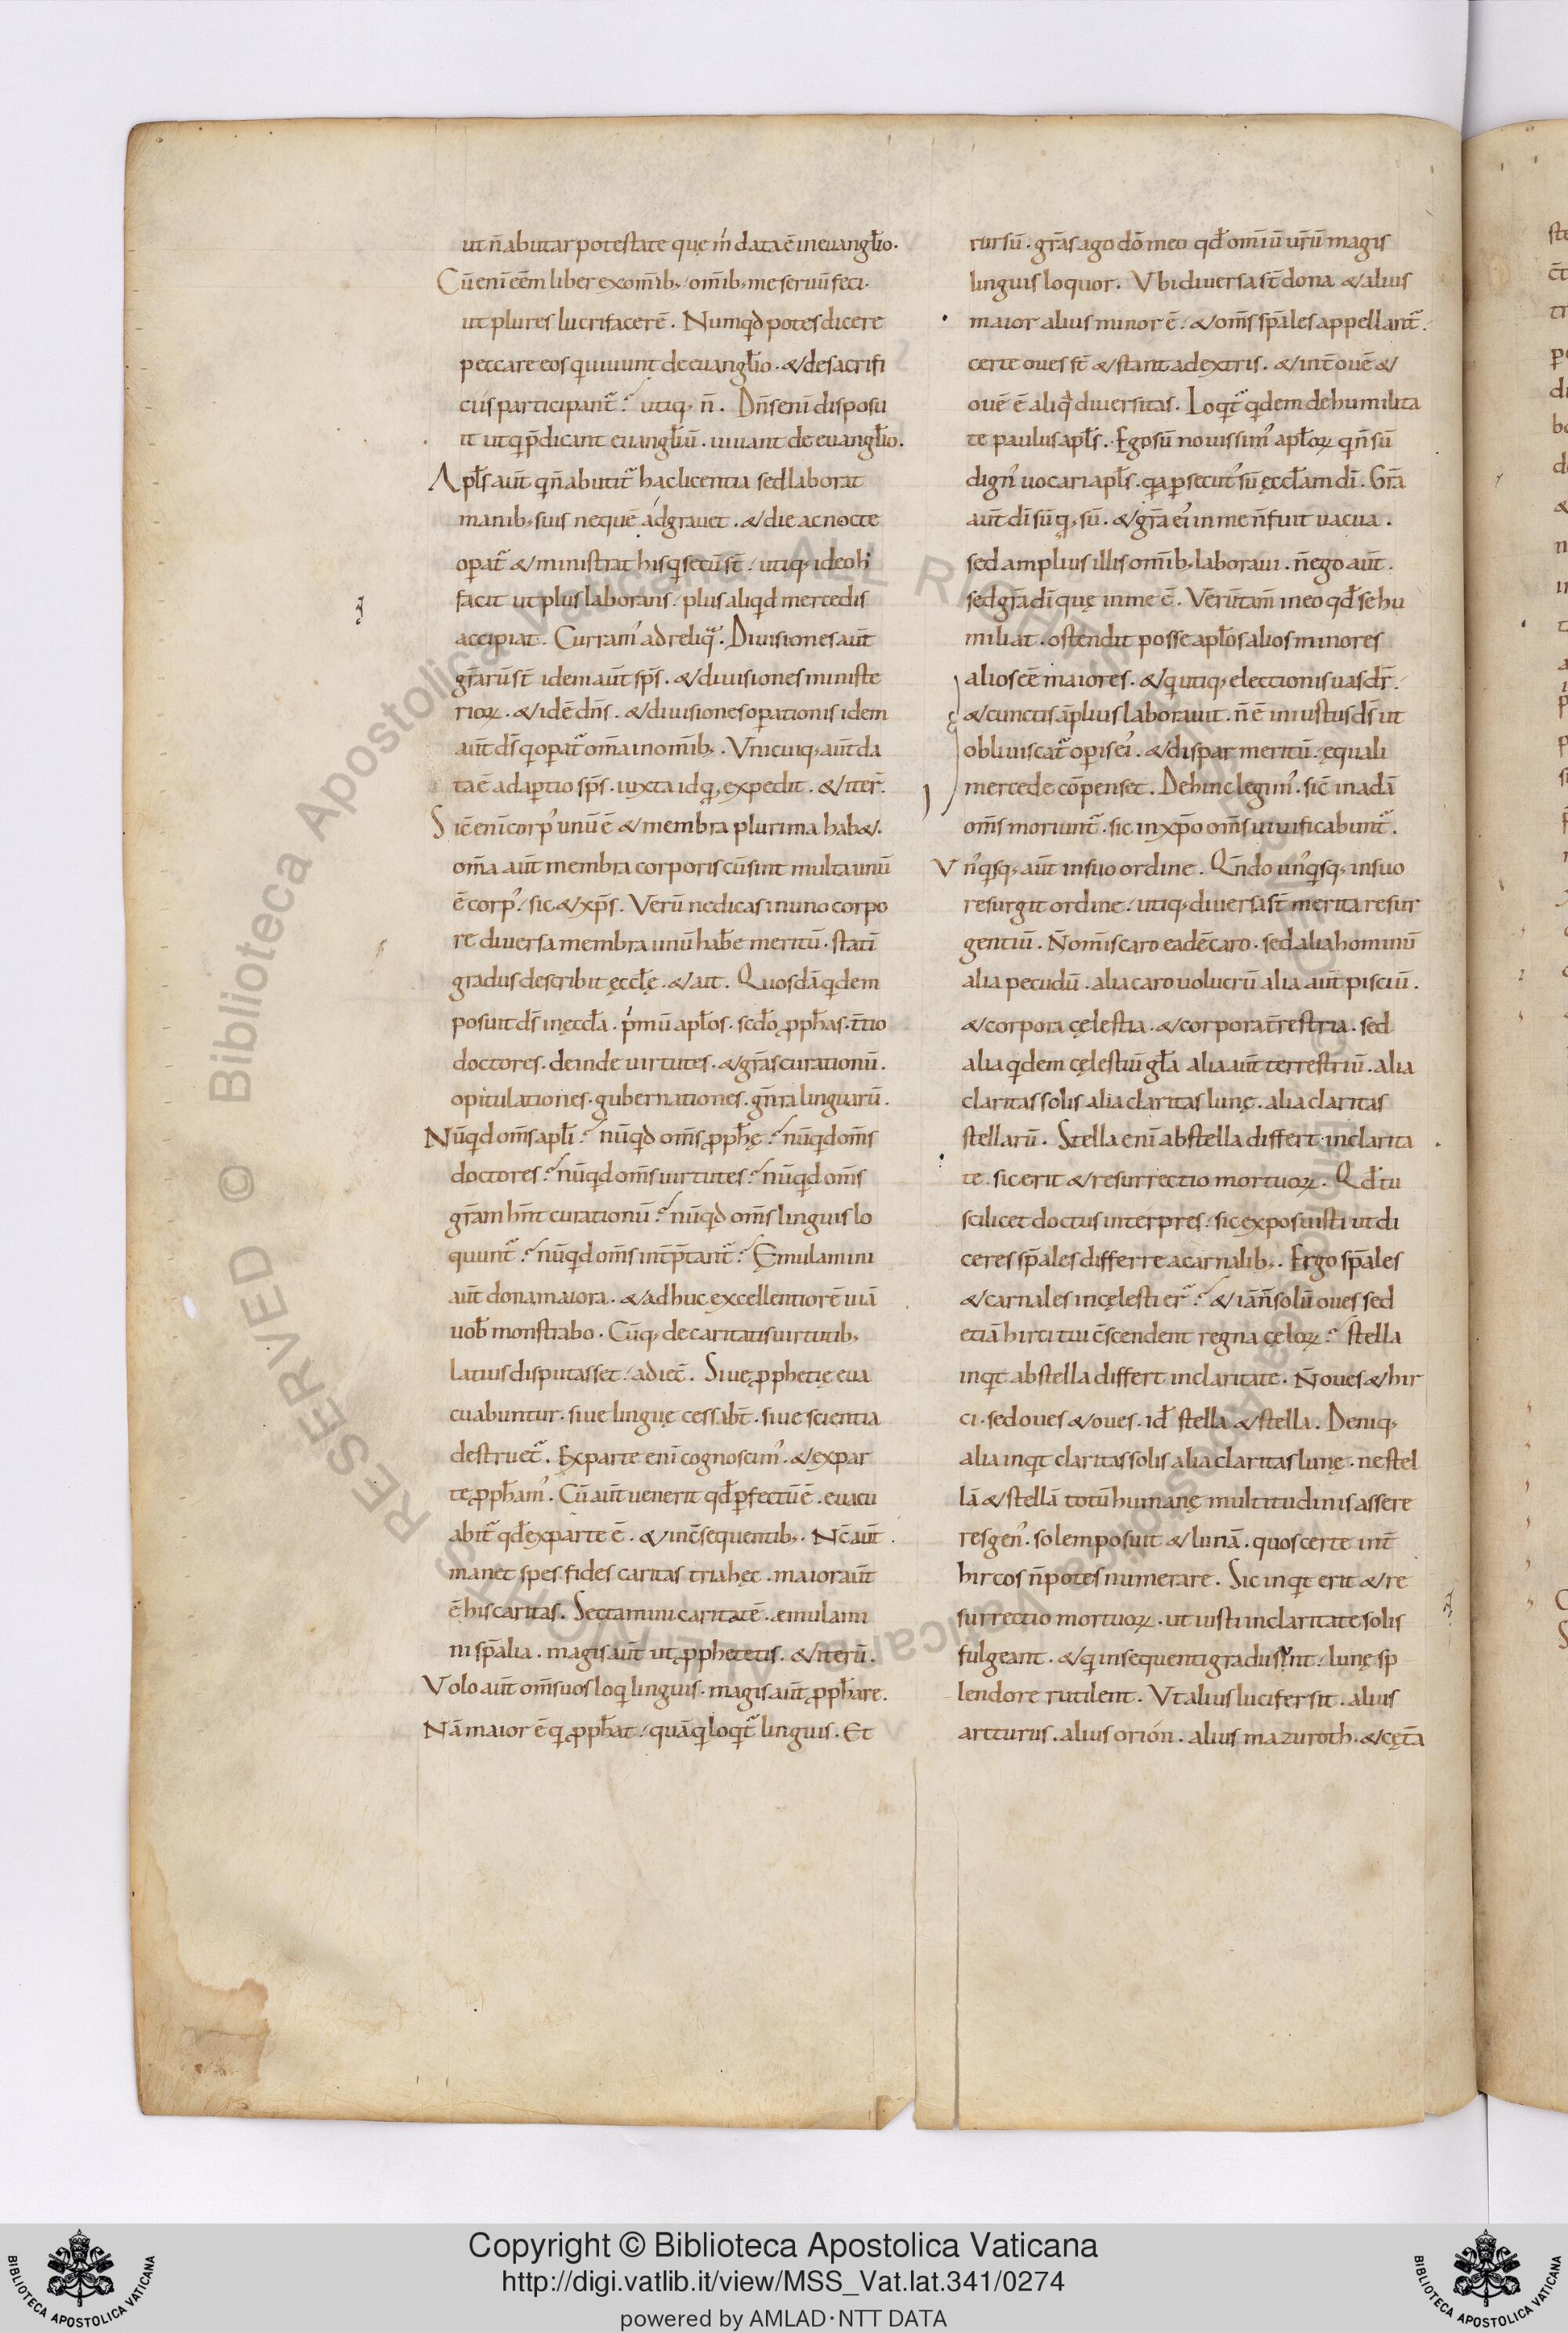 ut n̄ abutar potestate quę m̓ data ē in euangl̄io.
Cū enī eēm liber ex om̄ib; / om̄ib; me seruū feci.
ut plures lucrifacerē. Numqd potes dicere
peccare eos qui uiuunt de euangl̄io. & de sacrifi
ciis participant᷑? utiq; n̄. Dn̄s enī disposu
it ut qui p̄dicant euangl̄iū. uiuant de euangl̄io.
Apl̄s aūt qui n̄ abutit᷑ hac licentia sed laborat
manib; suis ne quē adgrauet. & die ac nocte
opat᷑ & ministrat his qui secū st̄ / utiq; ideo h̓
facit ut plus laborans / plus aliqd mercedis
accipiat. Curram᷒ ad reliq. Diuisiones aūt
gr̄arū st̄ idem aūt sp̄s. & diuisiones ministe
rioꝝ. & idē dn̄s. & diuisiones opationis idem
aūt ds̄ qui opat᷑ om̄a in om̄ib;. Vnicuiq; aūt da
ta ē adaptio sp̄s. iuxta id qd expedit. & iter̄.
Sic enī corp᷒ unū ē & membra plurima hab&.
om̄a aūt membra corporis cū sint multa unū
ē corp᷒ / sic & xp̄s. Verū ne dicas in uno corpo
re diuersa membra unū hab̄e meritū. statī
gradus describit ęccl̄ę. & ait. Quosdā qdem
posuit ds̄ in ęccl̄a. p̓mū apl̄os. scd̄o ꝓph̄as. t̄tio
doctores. deinde uirtutes. & gr̄as curationū.
opitulationes. gubernationes. gn̄ra linguarū.
Nūqd om̄s apl̄i? nūqd om̄s ꝓph̄ę? nūqd om̄s
doctores? nūqd om̄s uirtutes? nūqd om̄s
gr̄am hn̄t curationū? nūqd om̄s linguis lo
quunt᷑? nūqd om̄s int̄p̄tant᷑? Ęmulamini
aūt dona maiora. & adhuc excellentiorē uiā
uob̄ monstrabo. Cūq; de caritatis uirtutib;
latius disputasset / adiec̄. Siue ꝓphetię eua
cuabuntur. siue linguę cessab̄t. siue scientia
destruet᷑. Ex parte enī cognoscim᷒. & ex par
te ꝓph̄am᷒. Cū aūt uenerit qd̄ pfectū ē. euacu
abit᷑ qd̄ ex parte ē. & in c̄sequentib;. Nc̄ aūt
manet spes fides caritas tria hęc. maior aūt
ē his caritas. Sectamini caritatē. ęmulami
ni sp̄alia. magis aūt ut ꝓphetetis. & iterū.
Volo aūt om̄s uos loqui linguis. magis aūt ꝓph̄are.
Nā maior ē qui ꝓph̄at / quā qui loqt᷑ linguis. Et
rursū. gr̄as ago dō meo qd̄ om̄iū ur̄ū magis
linguis loquor. Vbi diuersa st̄ dona & alius
maior alius minor ē / & om̄s sp̄ales appellant᷑ /
certe oues st̄ & stant a dextris. & int̄ ouē &
ouē ē aliqua diuersitas. Loqt᷑ qdem de humilita
te paulus apl̄s. Ego sū nouissim᷒ apl̄oꝝ qui n̄ sū
dign᷒ uocari apl̄s. qa psecut᷒ sū ęccl̄am dī. Gr̄a
aūt dī sū qd sū. & gr̄a ei᷒ in me n̄ fuit uacua.
sed amplius illis om̄ib; laboraui. n̄ ego aūt.
sed gr̄a dī quę in me ē. Verūtam̄ in eo qd̄ se hu
miliat. ostendit posse apl̄os alios minores
alios eē maiores. & qui utiq; electionis uas dr̄ /
& cunctis āplius laborauit. n̄ ē iniustus ds̄ ut
obliuiscat᷑ opis ei᷒. & dispar meritū / ęquali
mercede cōpenset. Dehinc legim᷒. sic̄ in adā
om̄s moriunt᷑. sic in xp̄o om̄s uiuificabunt᷑.
Vn᷒qsq; aūt in suo ordine. Qn̄do un᷒qsq; in suo
resurgit ordine / utiq; diuersa st̄ merita resur
gentiū. N̄ om̄is caro eadē caro. sed alia hominū
alia pecudū. alia caro uolucrū alia aūt pisciū.
& corpora cęlestia. & corpora t̄restria. sed
alia qdem cęlestiū gl̄a alia aūt terrestriū. alia
claritas solis alia claritas lunę. alia claritas
stellarū. Stella enī ab stella differt in clarita
te. sic erit & resurrectio mortuoꝝ. Qd̄ tu
scilicet doctus interpres / sic exposuisti ut di
ceres sp̄ales differre a carnalib;. Ergo sp̄ales
& carnales in cęlesti er᷑? & iā n̄ solū oues sed
etiā hirci tui c̄scendent regna cęloꝝ? stella
inqt ab stella differt in claritate. N̄ oues & hir
ci. sed oues & oues. id̄ stella & stella. Deniq;
alia inqt claritas solis alia claritas lunę. ne stel
lā & stellā totū humanę multitudinis assere
res gen᷒. solem posuit & lunā. quos certe int̄
hircos n̄ potes numerare. Sic inqt erit & re
surrectio mortuoꝝ. ut iusti in claritate solis
fulgeant. & qui in sequenti gradu sunt / lunę sp
lendore rutilent. Vt alius lucifer sit. alius
arcturus. alius orión. alius mazuroth. & cęt̄a
Copyright © Biblioteca Apostolica Vaticana
http://digi.vatlib.it/view/MSS_Vat.lat.341/0274
powered by AMLAD·NTT DATA